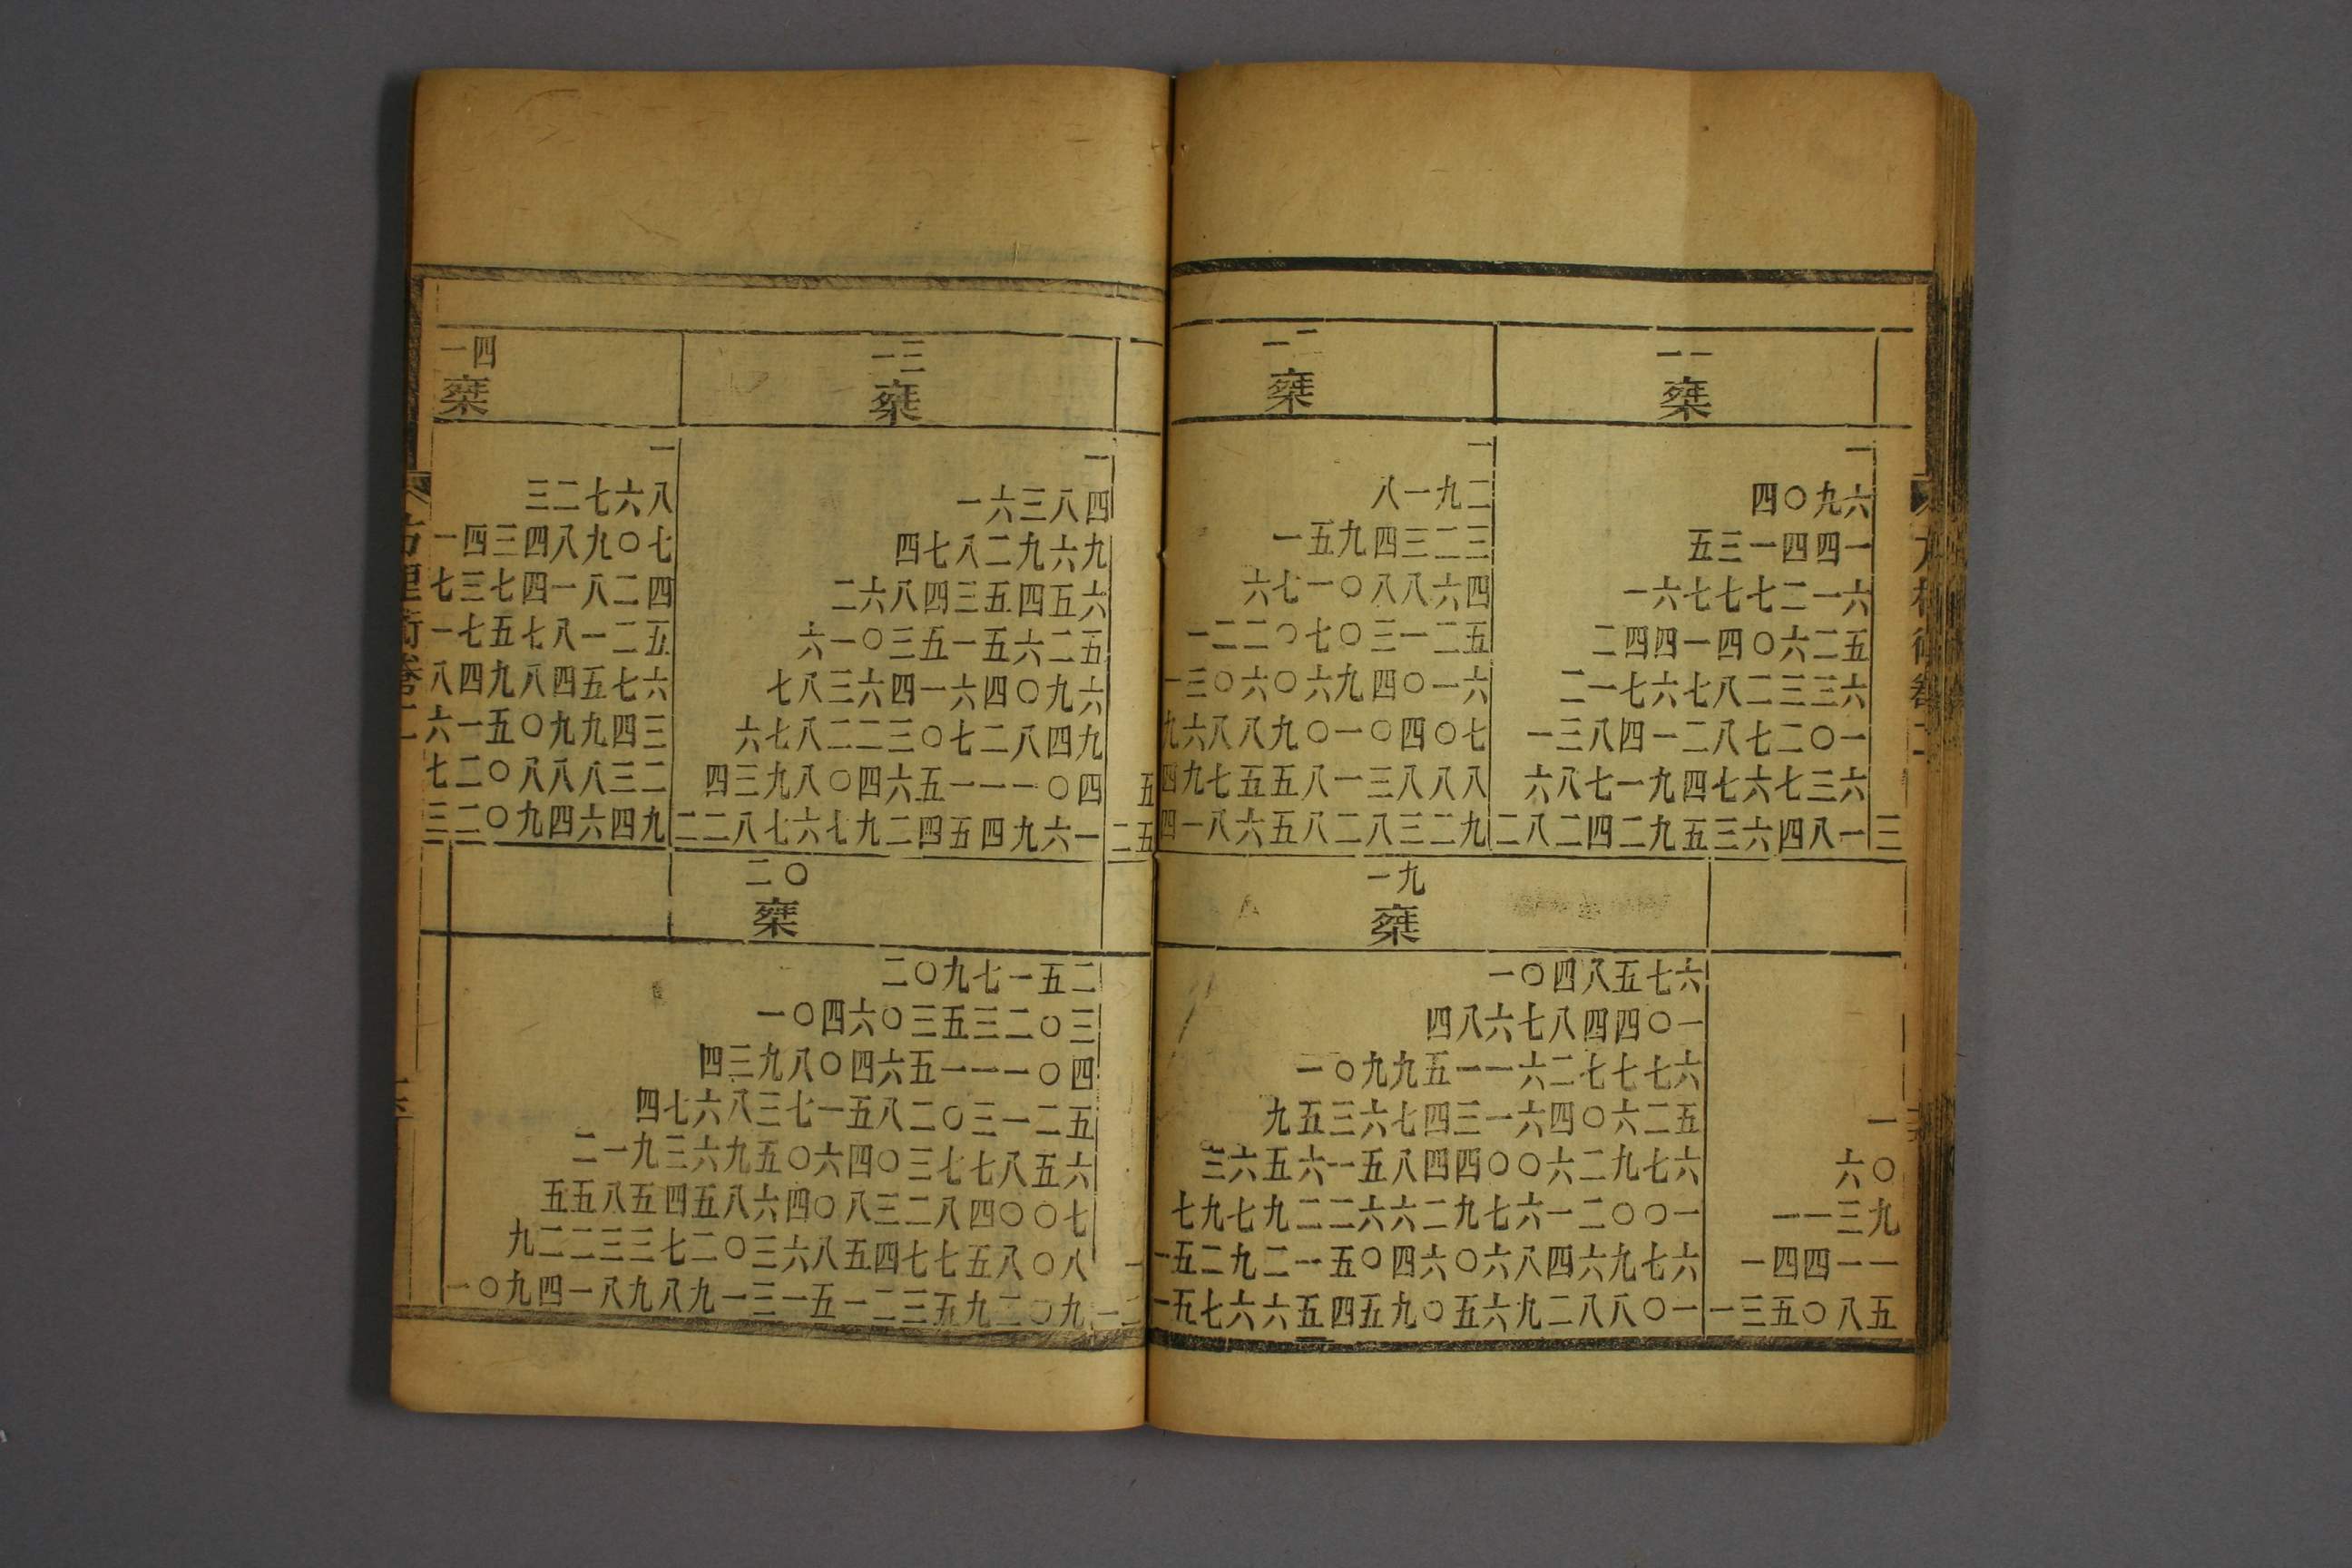 一一椉
一
四〇九六
五三一四四一
一六七七七二一六
二四四一四〇六二五
二一七六七八二三三六
一三八四一二八七二〇一
六八七一九四七六七三六
二八二四二九五三六四八一
三
一二椉
一
八一九二
一五九四三二三
六七一〇八八六四
一二二〇七〇三一二五
一三〇六〇六九四〇一六
九六八八九〇一〇四〇七
四九七五五八一三八八八
四一八六五八二八三二九
一
六〇
一一三九
一四四一一
一三五〇八五
一九椉
一〇四八五七六
四八六七八四四〇一
一〇九九五一一六二七七七六
九五三六七四三一六四〇六二五
三六五六一五八四四〇〇六二九七六
七九七九二二六六二九七六一二〇〇一
一五二九二一五〇四六〇六八四六九七六
一五七六六五四五九〇五六九二八八〇一
五
二五
一三椉
一
一六三八四
四七八二九六九
二六八四三五四五六
六一〇三五一五六二五
七八三六四一六四〇九六
六七八二二三〇七二八四九
四三九八〇四六五一一一〇四
二二八七六七九二四五四九六一
一四椉
一
三二七六八
一四三四八九〇七
七三七四一八二四
一七五七八一二五
八四九八四五七六
六一五〇九九四三
七二〇八八八三二
三二〇九四六四九
一
一二
二〇椉
二〇九七一五二
一〇四六〇三五三二〇三
四三九八〇四六五一一一〇四
四七六八三七一五八二〇三一二五
二一九三六九五〇六四〇三七七八五六
五五八五四五八六四〇八三二八四〇〇七
九二二三三七二〇三六八五四七七五八〇八
一〇九四一八九八九一三一五一二三五九二〇九